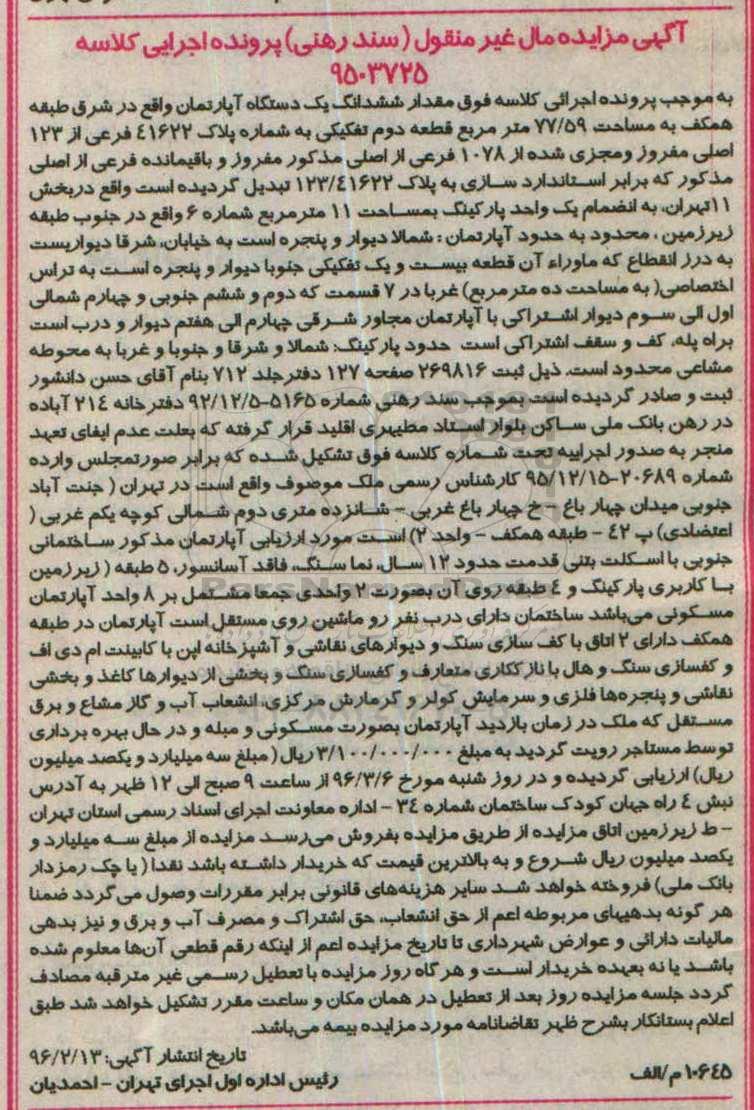 آگهی مزایده مال غیر منقول (سند رهنی) پرونده اجرایی کلاسه
۹۵۰۳۷۲۵
به موجب پرونده اجرائی کلاسه فوق مقدار ششدانگ یک دستگاه آپارتمان واقع در شرق طبقه
همکف به مساحت ۷۷/۵۹ متر مربع قطعه دوم تفکیکی به شماره پلاک ٤۱۶۲۲ فرعی از ۱۲۳
اصلی مفروز ومجزی شده از ۱۰۷۸ فرعی از اصلی مذکور مفروز و باقیمانده فرعی از اصلی
مذکور که برابر استاندارد سازی به پلاک ۱۲۳/٤۱۶۲۲ تبدیل گردیده است واقع دربخش
۱۱تهران، به انضمام یک واحد پارکینگ بمساحت ۱۱ مترمربع شماره ۶ واقع در جنوب طبقه
زیرزمین ، محدود به حدود آپارتمان : شمالا دیوار و پنجره است به خیابان، شرقا دیواریست
به درز انقطاع که ماوراء آن قطعه بیست و یک تفکیکی جنوبا دیوار و پنجره است به تراس
اختصاصی( به مساحت ده مترمربع) غربا در ۷ قسمت که دوم و ششم جنوبی و چهارم شمالی
اول الی سوم دیوار اشتراکی با آپارتمان مجاور شرقی چهارم الی هفتم دیوار و درب است
براه پله، کف و سقف اشتراکی است حدود پارکینگ: شمالا و شرقا و جنوبا و غربا به محوطه
مشاعی محدود است. ذیل ثبت ۲۶۹۸۱۶ صفحه ۱۲۷ دفترجلد ۷۱۲ بنام آقای حسن دانشور
ثبت و صادر گردیده است بموجب سند رهنی شماره ۵۱۶۵-۹۲/۱۲/۵ دفتر خانه ۲۱٤ آباده
در رهن بانک ملی ساکن بلوار استاد مطهری اقلید قرار گرفته که بعلت عدم ایفای تعهد
منجر به صدور اجراییه تحت شماره کلاسه فوق تشکیل شده که برابر صورتمجلس وارده
شماره ۲۰۶۸۹-۹۵/۱۲/۱۵ کارشناس رسمی ملک موصوف واقع است در تهران ( جنت آباد
جنوبی میدان چهار باغ - خ چهار باغ غربی - شانزده متری دوم شمالی کوچه یکم غربی (
اعتضادی) پ ٤۲ - طبقه همکف - واحد ۲) است مورد ارزیابی آپارتمان مذکور ساختمانی
جنوبی با اسکلت بتنی قدمت حدود ۱۲ سال، نما سنگ، فاقد آسانسور، ۵ طبقه ( زیرزمین
با کاربری پارکینگ و ٤ طبقه روی آن بصورت ۲ واحدی جمعا مشتمل بر ۸ واحد آپارتمان
مسکونی می‌باشد ساختمان دارای درب نفر رو ماشین روی مستقل است آپارتمان در طبقه
همکف دارای ۲ اتاق با کف سازی سنگ و دیوارهای نقاشی و آشپزخانه اپن با کابینت ام دی اف
و کفسازی سنگ و هال با نازککاری متعارف و کفسازی سنگ و بخشی از دیوارها کاغذ و بخشی
نقاشی و پنجره‌ها فلزی و سرمایش کولر و گرمارش مرکزی، انشعاب آب و گاز مشاع و برق
مستقل که ملک در زمان بازدید آپارتمان بصورت مسکونی و مبله و در حال بهره برداری
توسط مستاجر رویت گردید به مبلغ ۳/۱۰۰/۰۰۰/۰۰۰ ریال ( مبلغ سه میلیارد و یکصد میلیون
ریال) ارزیابی گردیده و در روز شنبه مورخ ۹۶/۳/۶ از ساعت ۹ صبح الی ۱۲ ظهر به آدرس
نبش ٤ راه جهان کودک ساختمان شماره ۳٤ - اداره معاونت اجرای اسناد رسمی استان تهران
- ط زیرزمین اتاق مزایده از طریق مزایده بفروش می‌رسد مزایده از مبلغ سه میلیارد و
یکصد میلیون ریال شروع و به بالاترین قیمت که خریدار داشته باشد نقدا ( یا چک رمزدار
بانک ملی) فروخته خواهد شد سایر هزینه‌های قانونی برابر مقررات وصول می‌گردد ضمنا
هر گونه بدهیهای مربوطه اعم از حق انشعاب، حق اشتراک و مصرف آب و برق و نیز بدهی
مالیات دارائی و عوارض شهرداری تا تاریخ مزایده اعم از اینکه رقم قطعی آن‌ها معلوم شده
باشد یا نه بعهده خریدار است و هر گاه روز مزایده با تعطیل رسمی غیر مترقبه مصادف
گردد جلسه مزایده روز بعد از تعطیل در همان مکان و ساعت مقرر تشکیل خواهد شد طبق
اعلام بستانکار بشرح ظهر تقاضانامه مورد مزایده بیمه می‌باشد.
تاریخ انتشار آگهی: ۹۶/۲/۱۳
۱۰۶٤۵ م/الف
رئیس اداره اول اجرای تهران - احمدیان